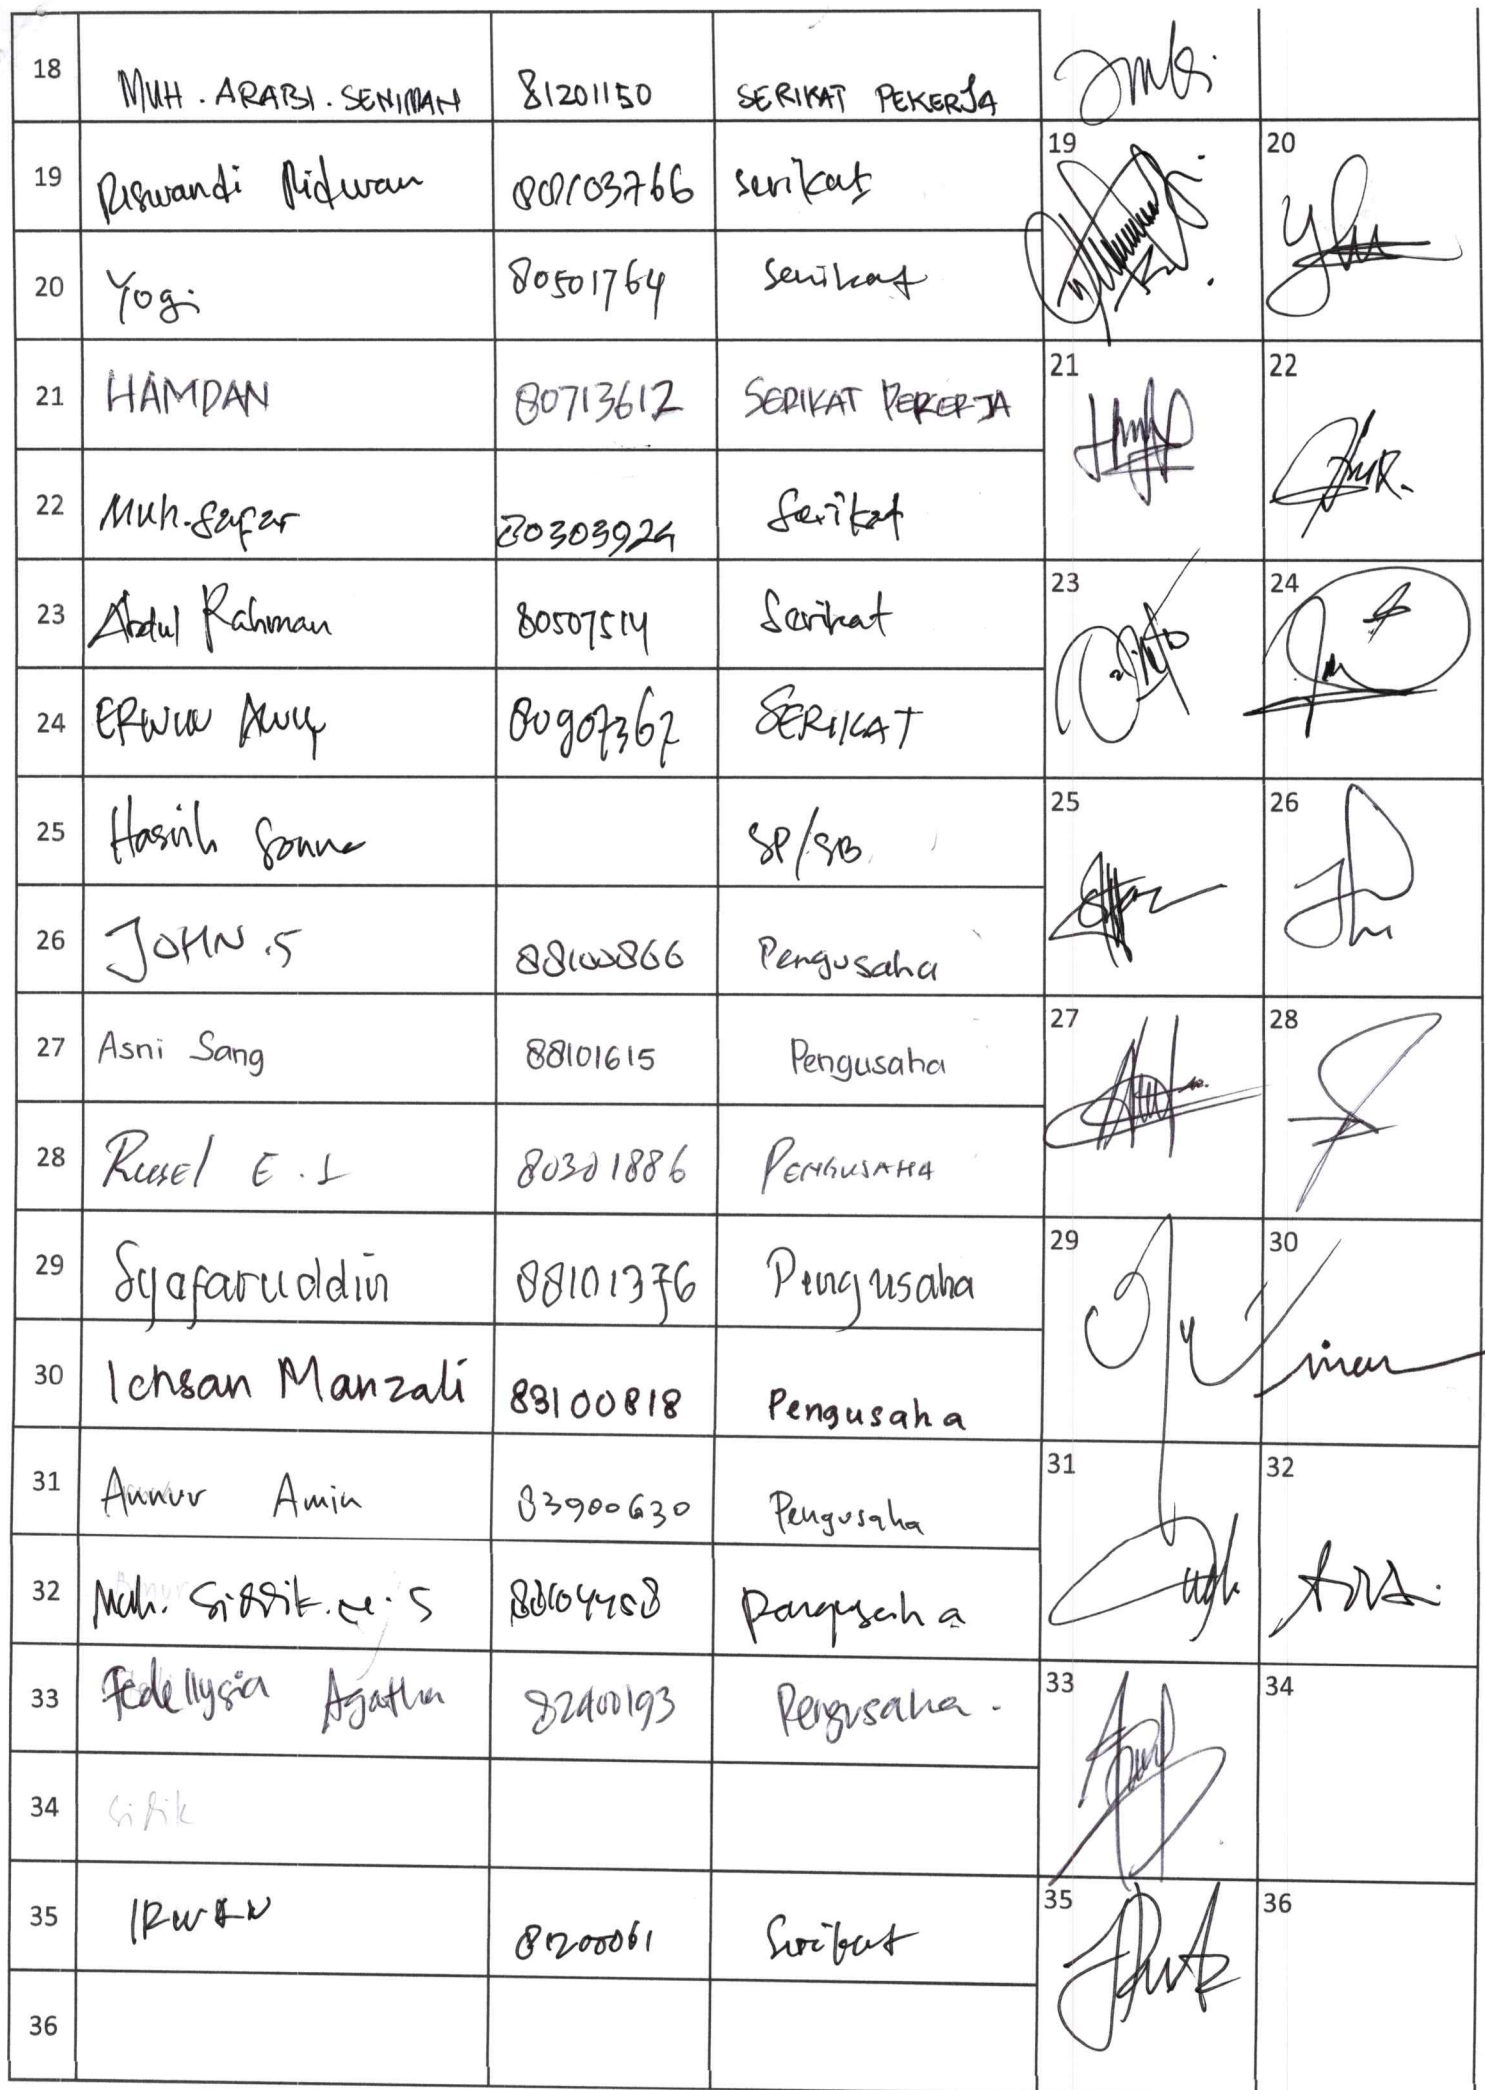 18 MUH. ARABI. SENIMAN 81201150 SERIKAT PEKERJA
19 Riswandi Ridwan serikat 19 20
20 Yogi 80501764 serikat
21 HAMDAN 80713612 SERIKAT PEKERJA 21 22
22 Muh. Safar 80303924 Serikat
23 Abdul Rahman 80507514 Serikat 23 24
24 ERWIN 80907367 SERIKAT
25 SP/SB 25 26
26 JOHN.S 88100866 Pengusaha
27 Asni Sang 88101615 Pengusaha 27 28
28 E.L 80301886 PENGUSAHA
29 Syafaruddin 88101376 Pengusaha 29 30
30 Ichsan Manzali 83100818 Pengusaha
31 Annur Amin 83900630 Pengusaha 31 32
32 Muh. Siddik. S Pengusaha
33 Fedellysia Agatha 82400193 Pengusaha. 33 34
34 Sidik
35 IRWAN 81200061 Serikat 35 36
36